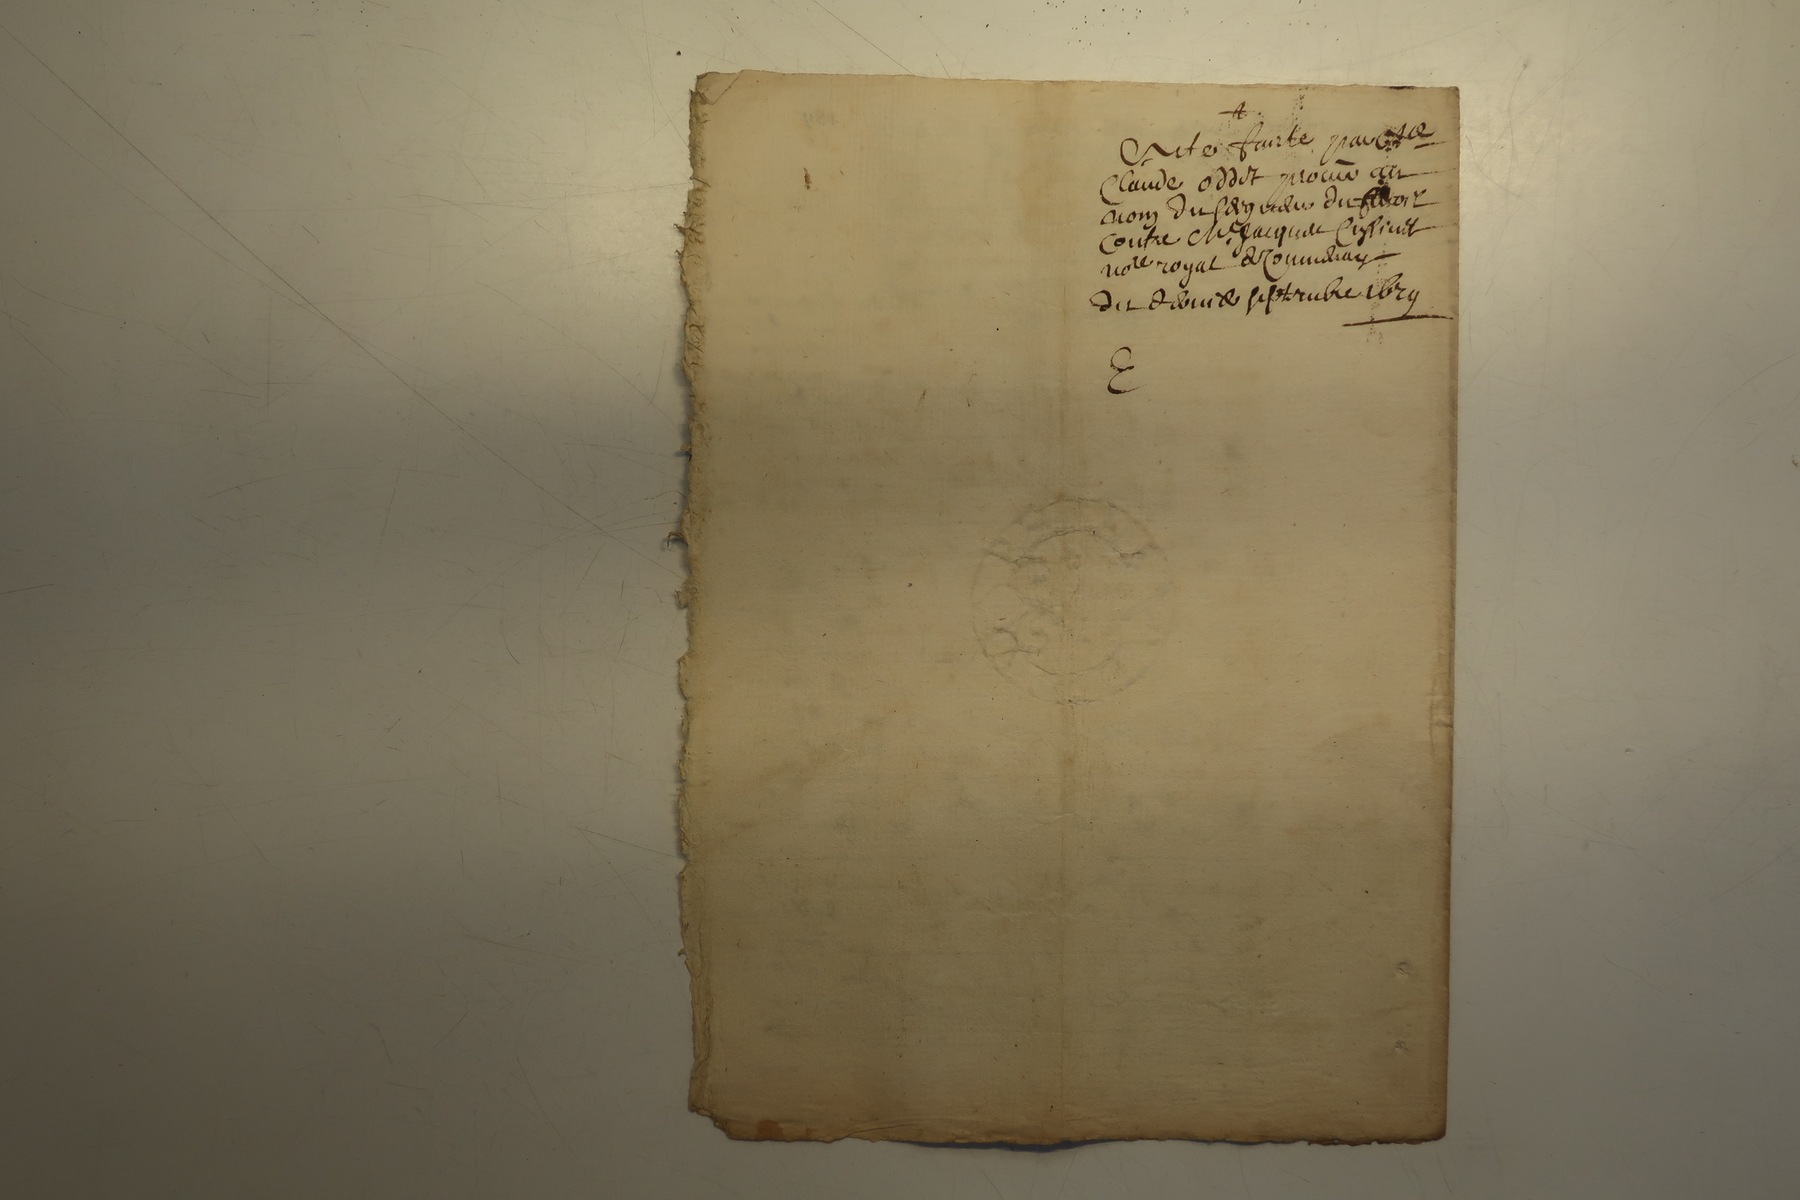 Acte faicte par Me
Claude oddet procur au
nom du seigneur du
Contre Me Jacques
nore royal
du septembre 1629
E